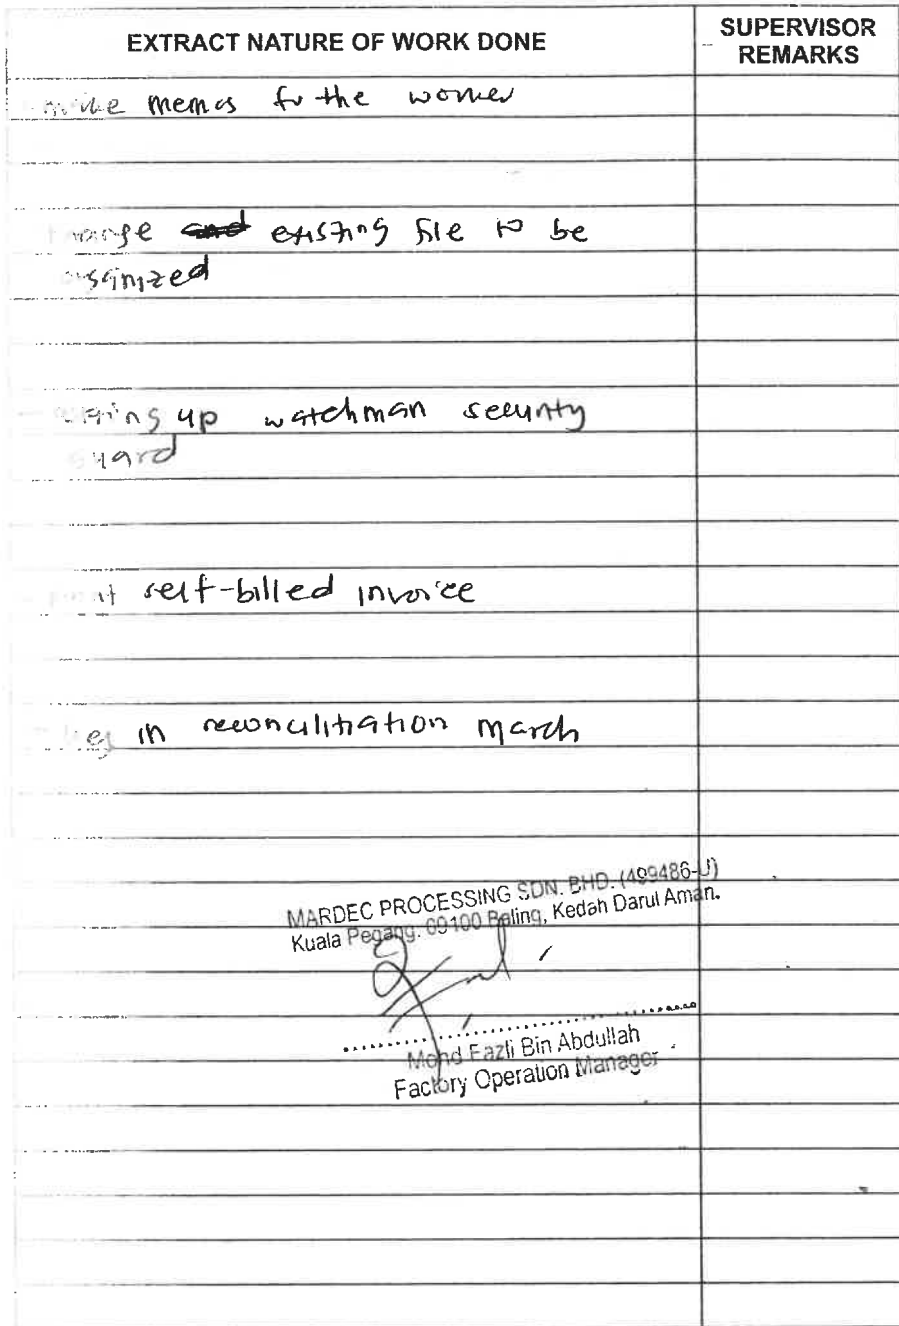 EXTRACT NATURE OF WORK DONE
SUPERVISOR
REMARKS
make memos for the worker
existing file to be
up watchman security
guard
self-billed invoice
in reconcilitiation march
MARDEC PROCESSING SDN. BHD. (499486-U)
Kuala Pegang. 09100 Baling, Kedah Darul Aman.
Mohd Fazli Bin Abdullah
Factory Operation Manager